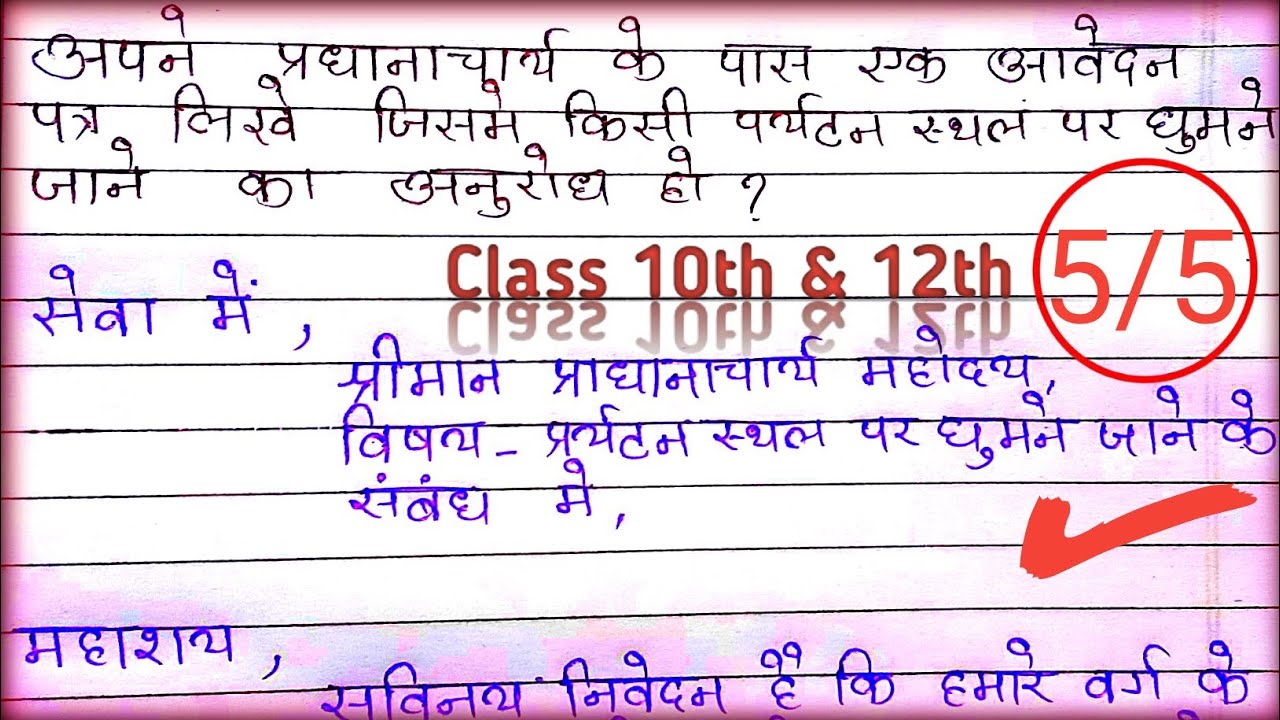 अपने प्रधानाचार्य के पास एक आवेदन
पत्र लिखे जिसमे किसी पर्यटन स्थल पर घुमने
जाने का अनुरोध हो ?
Class 10th & 12th
5/5
सेवा में,
श्रीमान प्राधानाचार्य महोदय,
विषय - प्रर्यटन स्थल पर घुमने जाने के
संबंध मे,
महाशय,
सविनय निवेदन है कि हमारे वर्ग के